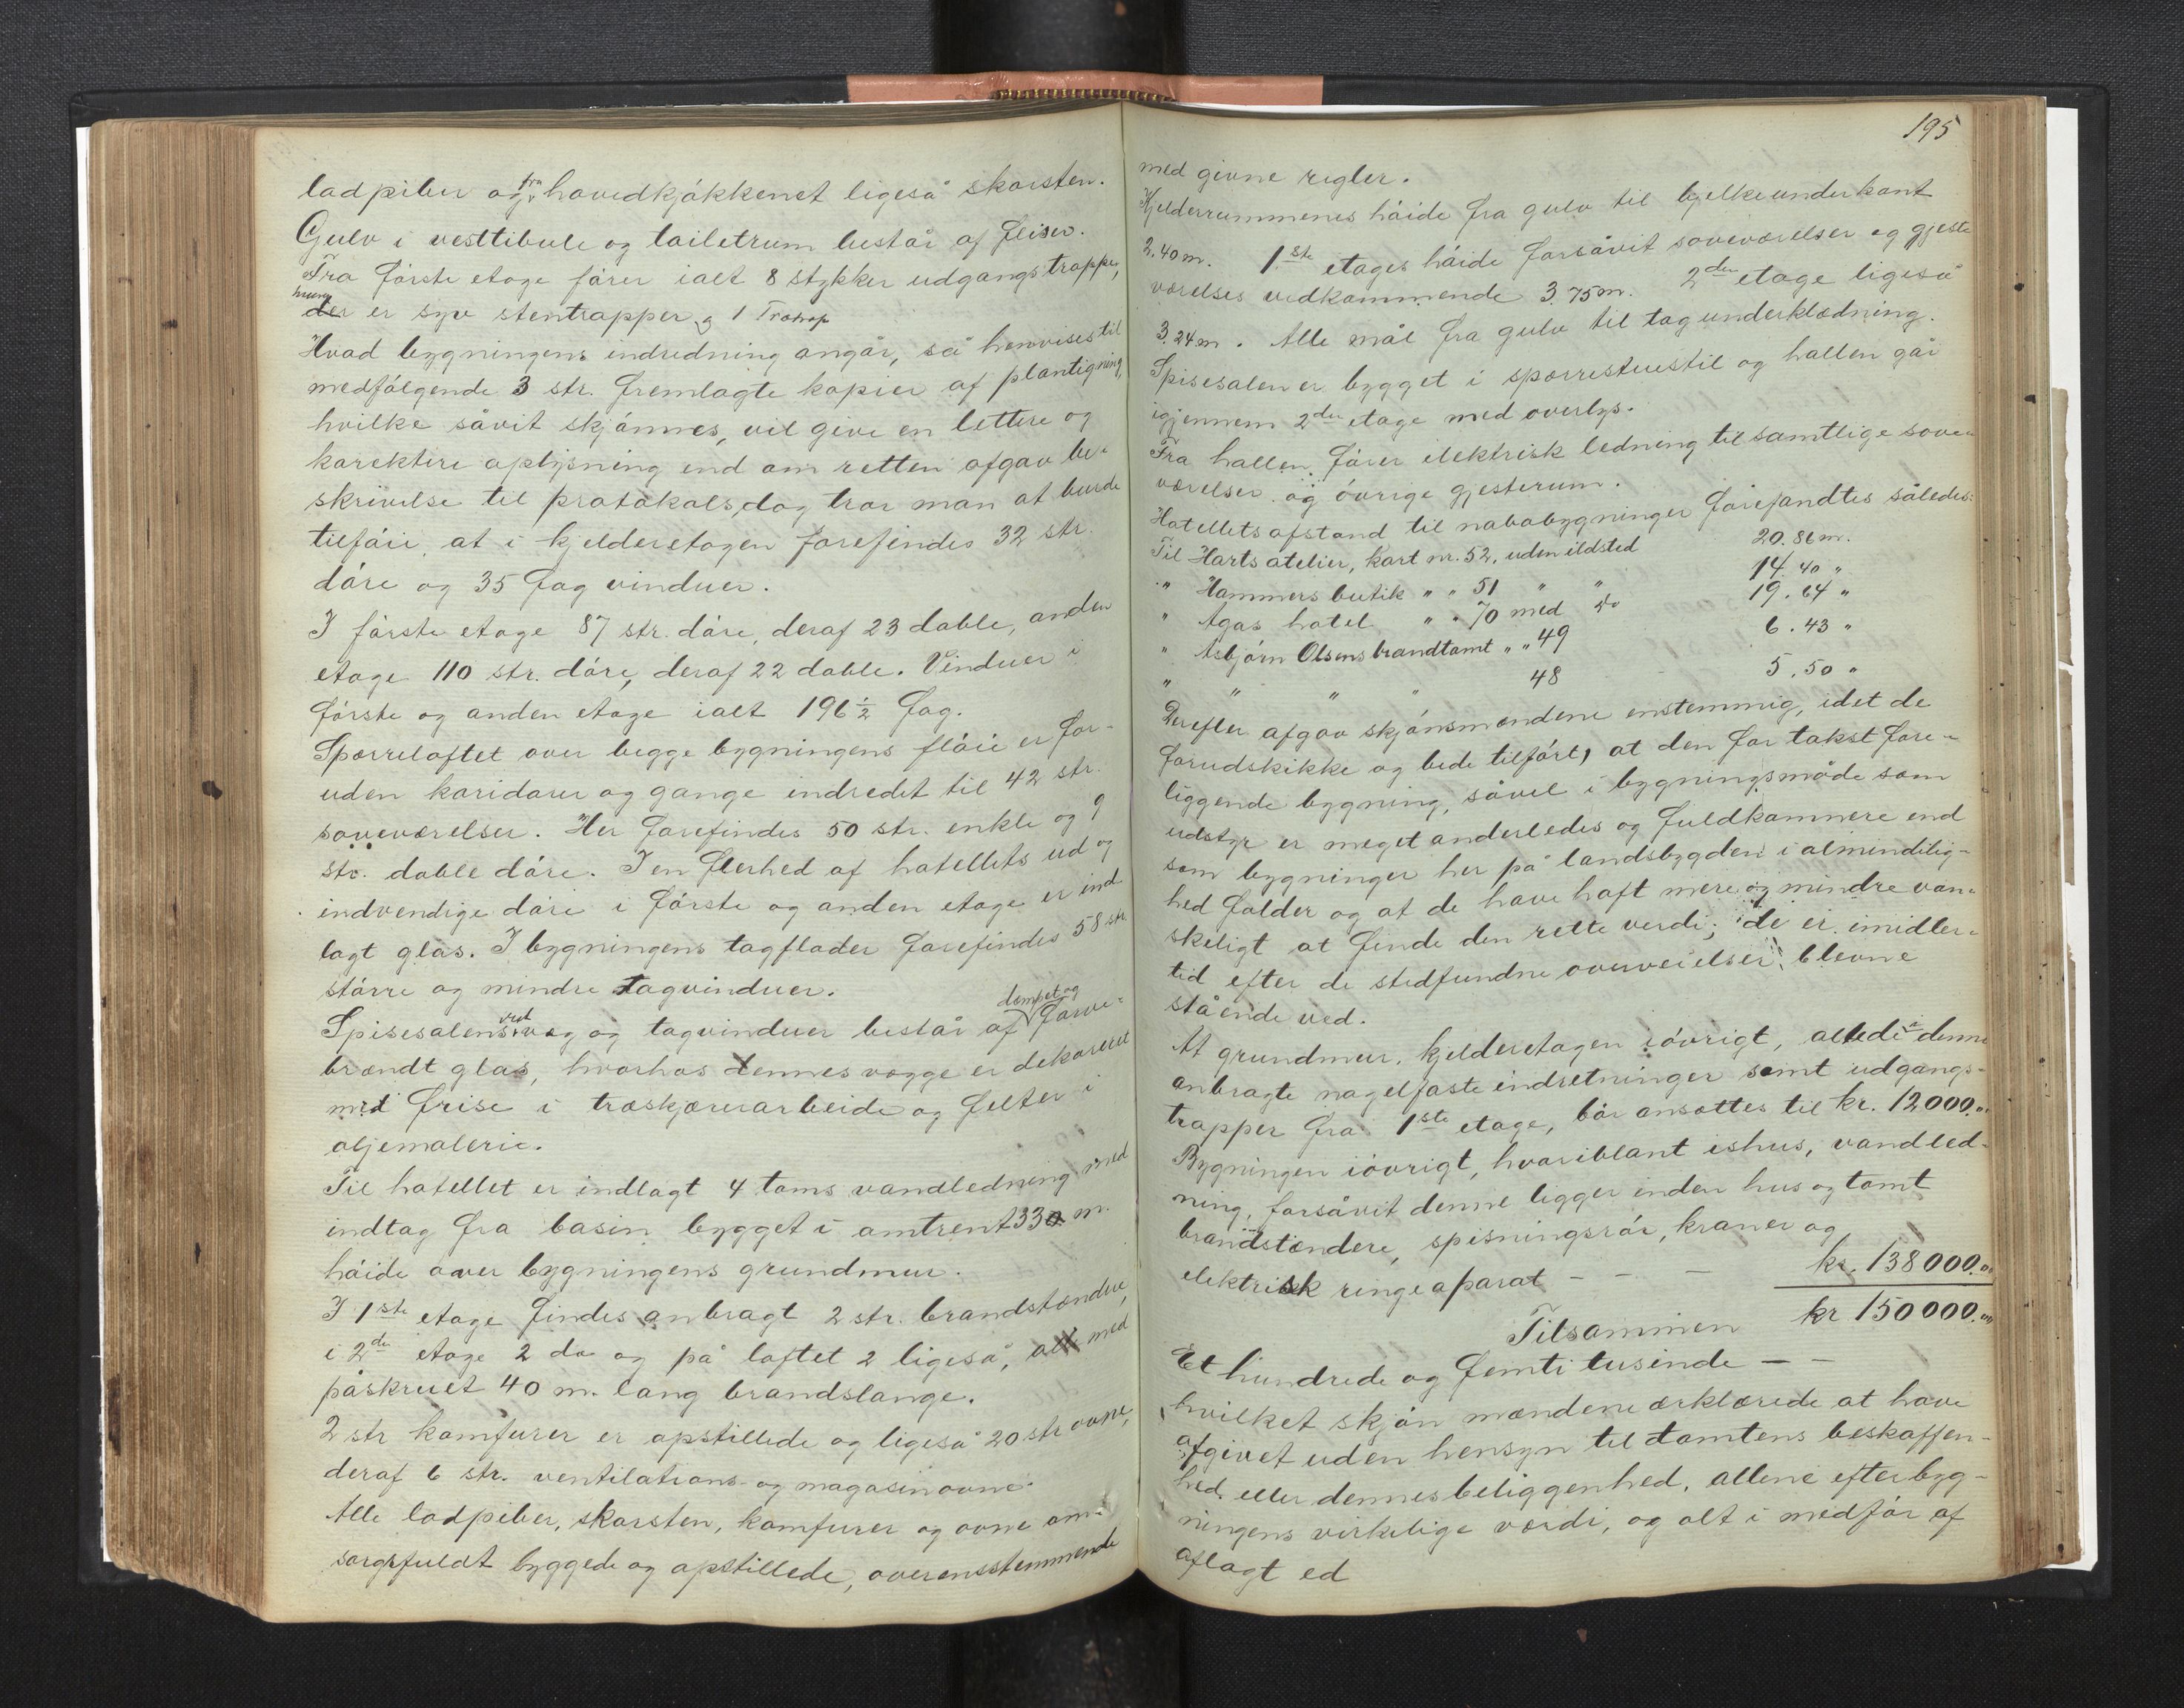 ladpiber og fra hovedkjøkkenet ligeså skorsten.
Gulv i vesttibule og toiletrum består af fliser.
Fra første etage fører ialt 8 stykker udgangstrapper,
hvoraf er syv stentrapper og 1 Trætrap
Hvad bygningens indredning angår, så henvises til
medfølgende 3 str. fremlagte kopier af plantigning,
hvilke såvit skjønnes, vil give en lettere og
korektere oplysning end om retten afgav be-
skrivelse til protokols, dog tror man at burde
tilføie, at i kjelderetagen forefindes 32 str.
døre og 35 fag vinduer.
I første etage 87 str. døre, deraf 23 doble, anden
etage 110 str. døre, deraf 22 doble. Vinduer i
første og anden etage ialt 196 ½ fag.
Sparreloftet over begge bygningens fløie er for-
uden koridorer og gange indredet til 42 str.
soveværelser. Her forefindes 50 str. enkle og 9
str. doble døre. I en flerhed af hotellets ud og
indvendige døre i første og anden etage er ind
lagt glas. I bygningens tagflader forefindes 58 str.
større og mindre tagvinduer.
Spisesalens væg og tagvinduer består af dempet og farve-
brændt glas, hvorhos dennes vægge er dekoreret
med frise i træskjærerarbeide og felter i
oljemalerie.
Til hotellet er indlagt 4 toms vandledning med
indtag fra basin bygget i omtrent 330 m.
høide over bygningens grundmur.
I 1ste etage findes anbragt 2 str. brandstændere,
i 2de etage 2 do og på loftet 2 ligeså, alt med
påskruet 40 m. lang brandslange.
2 str komfurer er opstillede og ligeså 20 str ovne,
deraf 6 str. ventilations- og magasinovne.
Alle ladpiber, skorsten, komfurer og ovne om-
sorgsfuldt byggede og opstillede, overensstemmende
195
med givne regler.
Kjelderrummenes høide fra gulv til bjelkeunderkant
2.40 m. 1ste etages høide forsåvit soveværelser og gjeste
værelses vedkommende 3.75 m. 2den etage ligeså
3.24 m. Alle mål fra gulv til tagunderklædning.
Spisesalen er bygget i sparrestuestil og hallen går
igjennem 2den etage med overlys.
Fra hallen fører elektrisk ledning til samtlige sove-
værelser og øvrige gjesterum.
Hotellets afstand til nabobygninger forefandtes således:
Til Harts atelier, kart nr. 52, uden ildsted 20.86 m.
" Hammers butik " " 51 " " 14.40 "
" Agas hotel " " 70 med do 19.64 "
" Asbjørn Olsens brandtomt " " 49 6.43 "
" " " " 48 5.50 "
Derefter afgav skjønsmændene enstemmig, idet de
forudskikke og bede tilført, at den for takst fore-
liggende bygning, såvel i bygningsmåde som
udstyr er meget anderledes og fuldkomnere end
som bygninger her på landsbygden i almindelig-
hed falder og at de have haft mere og mindre van-
skeligt at finde den rette verdi; de er imidler-
tid efter de stedfundne overveielser blevne
stående ved.
At grundmur, kjelderetagen iøvrigt, allede i denne
anbragte nagelfaste indretninger samt udgangs-
trapper fra 1ste etage, bør ansættes til kr. 12000.00
Bygningen iøvrigt, hvoriblant ishus, vandled-
ning, forsåvit denne ligger inden hus og tomt
brandstændere, spisningsrør, kraner og
elektrisk ringeaparat - - - kr. 138000.00
Tilsammen kr 150000.00
Et hundrede og femti tusinde - -
hvilket skjøn mændene erklærede at have
afgivet uden hensyn til tomtens beskaffen-
hed eller dennes beliggenhed, allene efter byg-
ningens virkelige værdi, og alt i medfør af
aflagt ed